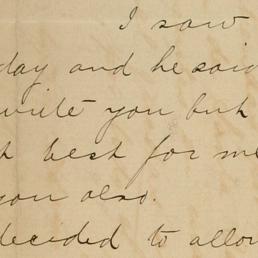 I saw
day and he said
write you but
best for me
you also.
decided to allow